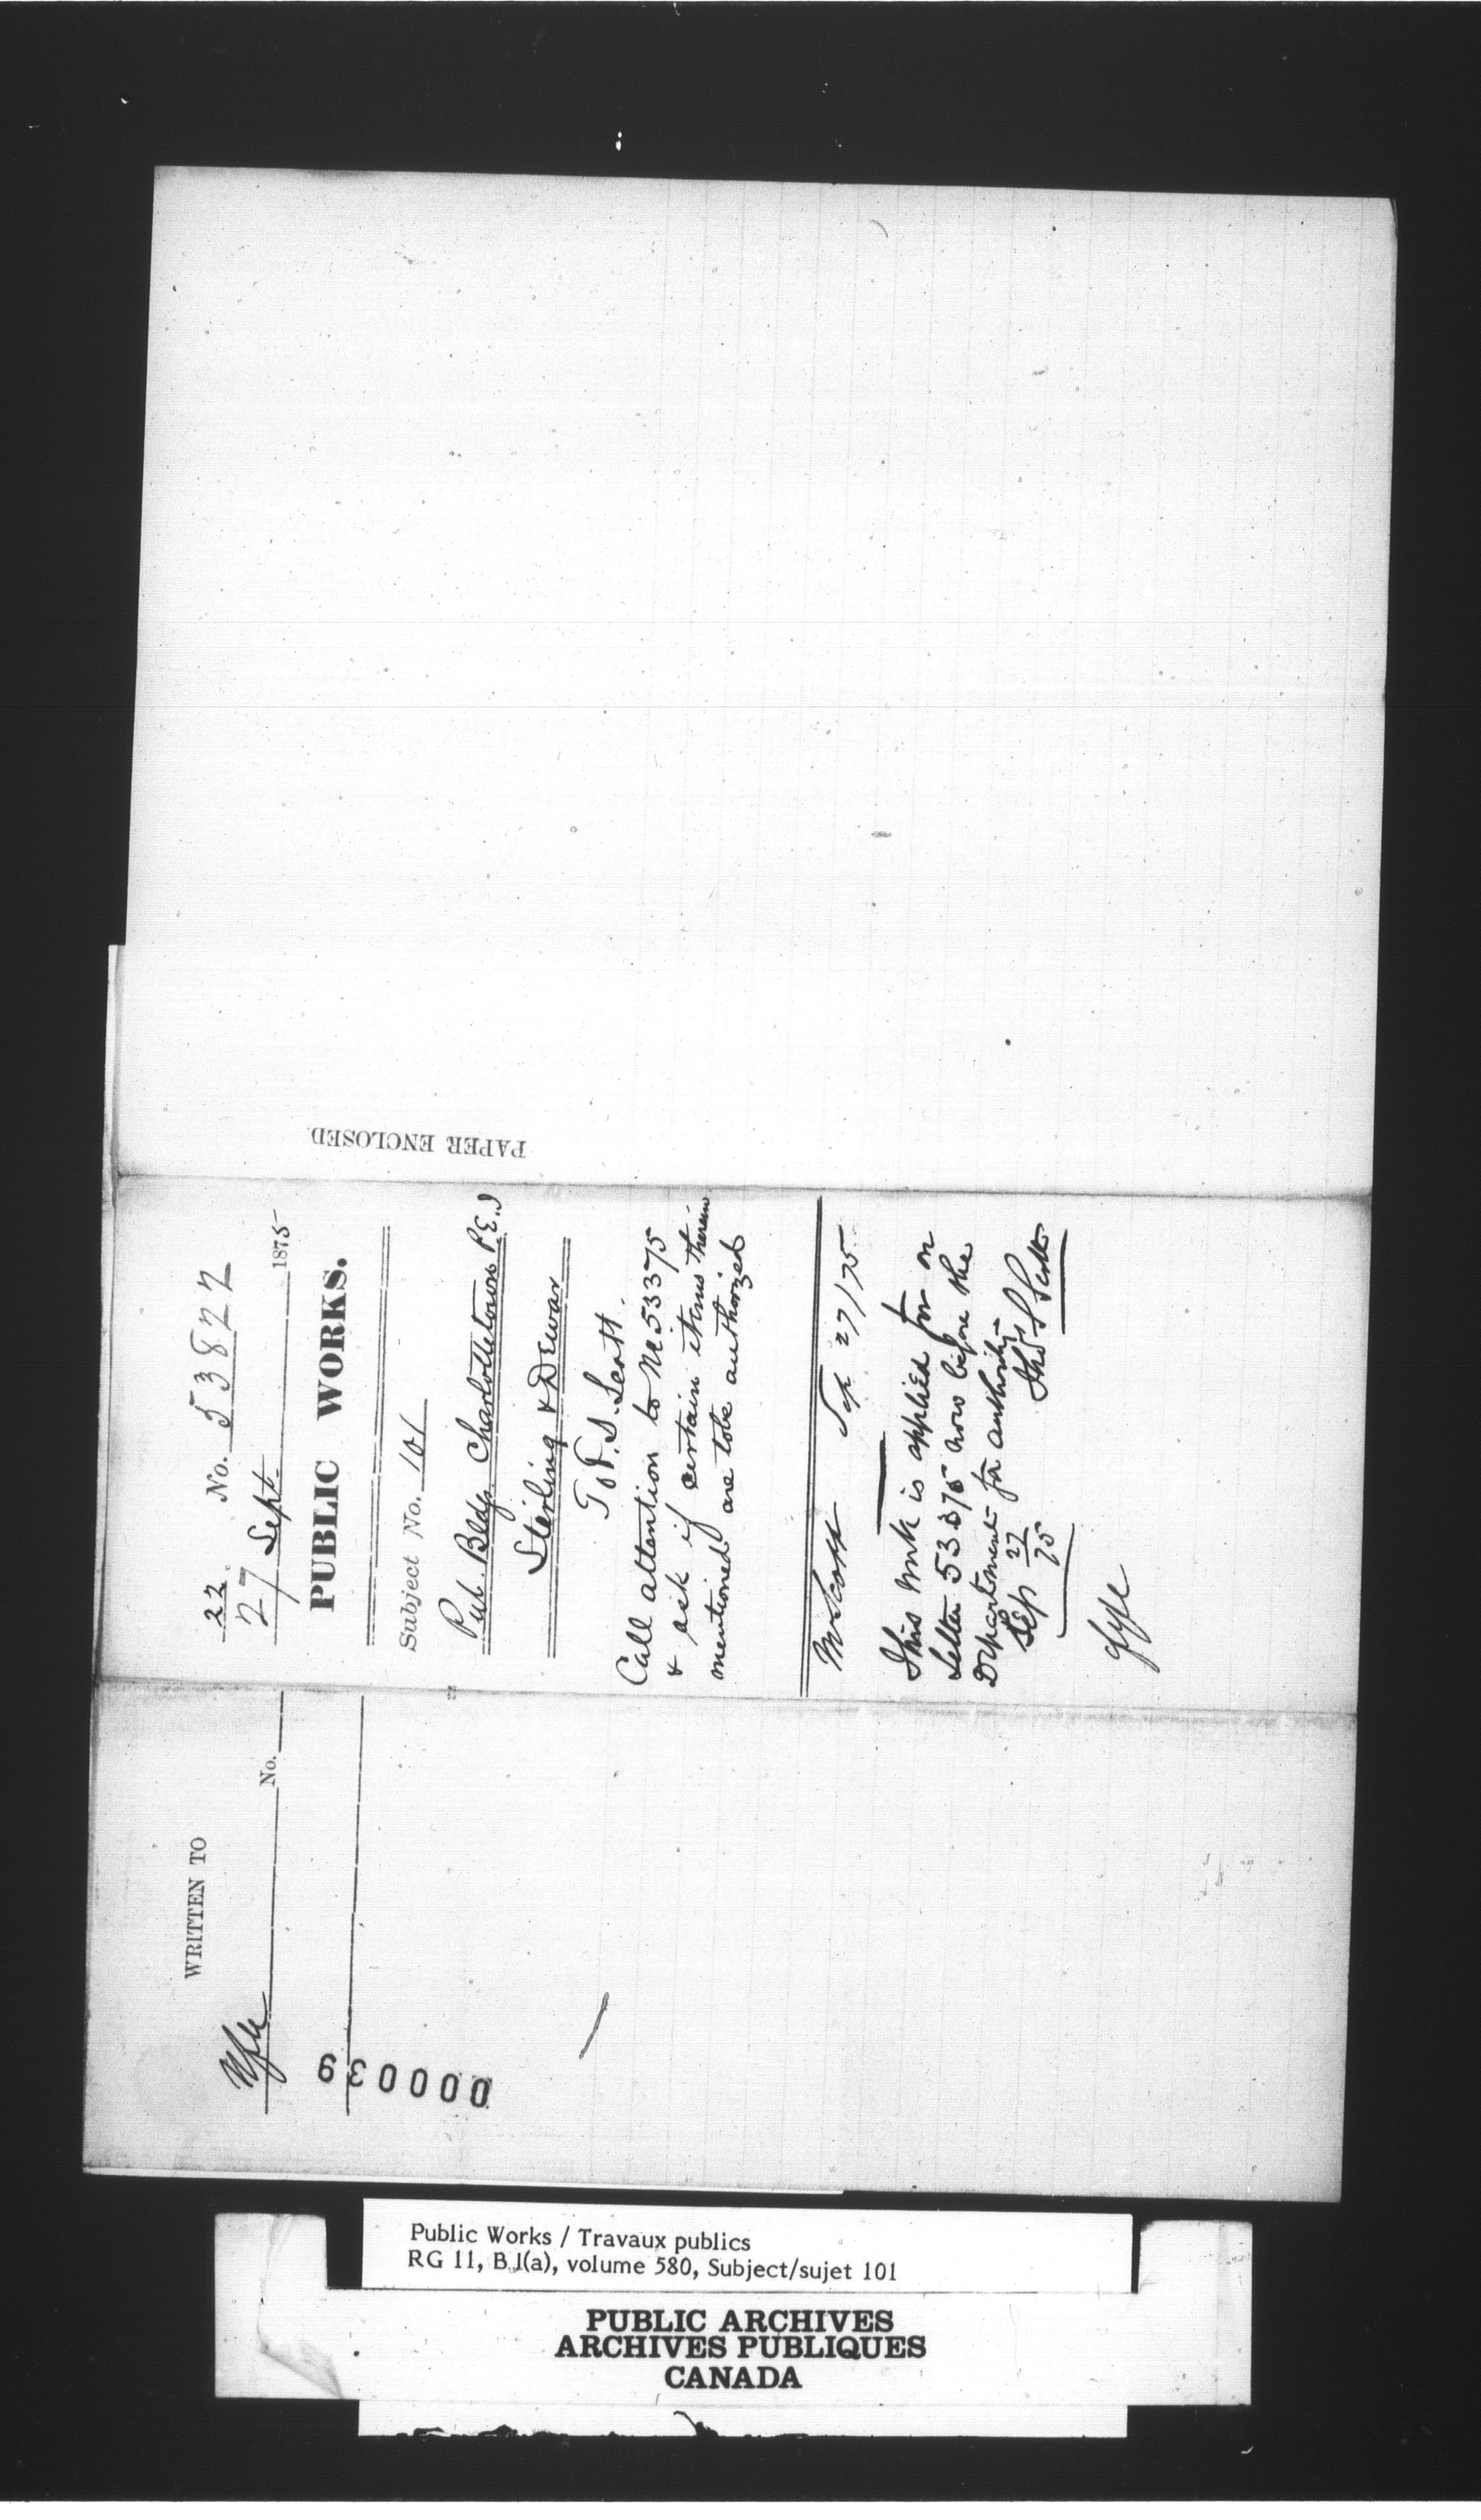 22 No. 53822
27 Sept. 1875
PUBLIC WORKS.
Subject No. 101
Pub. Bldgs. Charlottetown P.E.I
Sterling & Dewar
To T. S. Scott.
Call attention to No 53375
& ask if certain items therein
mentioned are to be authorized
Mr Scott Sep 27/75
This work is applied for on
letter 53375 now before the
Department for authority
Sep 27/75 Thos S Scott
fyle
PAPER ENCLOSED.
WRITTEN TO
No.
000039
Public Works / Travaux publics
RG 11, B 1(a), volume 580, Subject/sujet 101
PUBLIC ARCHIVES
ARCHIVES PUBLIQUES
CANADA